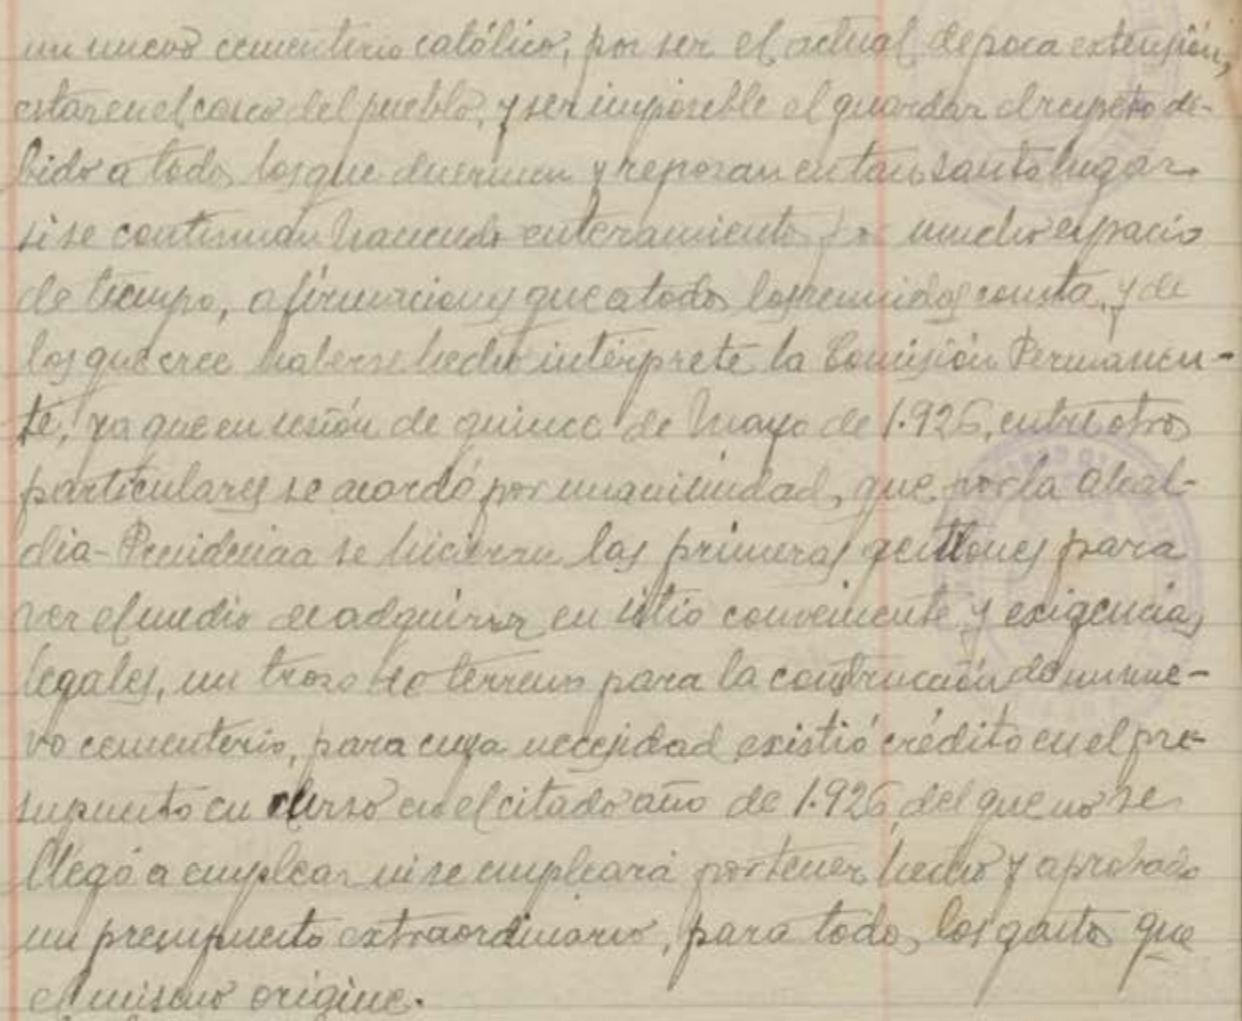 un nuevo cementerio católico, por ser el actual de poca extensión,
estar en el casco del pueblo, y ser imposible el guardar el respeto de-
bido a todos los que duermen y reposan en tan santo lugar
si se continuan haciendo enteramientos por mucho espacio
de tiempo, afirmaciones que a todos los reunidos consta, y de
los que cree haberse hecho intérprete la Comisión Permanen-
te, ya que en sesión de quince de Mayo de 1.926, entre otros
particulares se acordó por unanimidad, que por la Alcal-
dia-Presidencia se hicieran las primeras gestiones para
ver el medio de adquirir en sitio conveniente y exigencias
legales, un trozo de terreno para la construcción de un nue-
vo cementerio, para cuya necesidad existió crédito en el pre-
supuesto en curso en el citado año de 1.926, del que no se
llegó a emplear ni se empleará por tener hecho y aprobado
un presupuesto extraordinario, para todos los gastos que
el mismo origine.